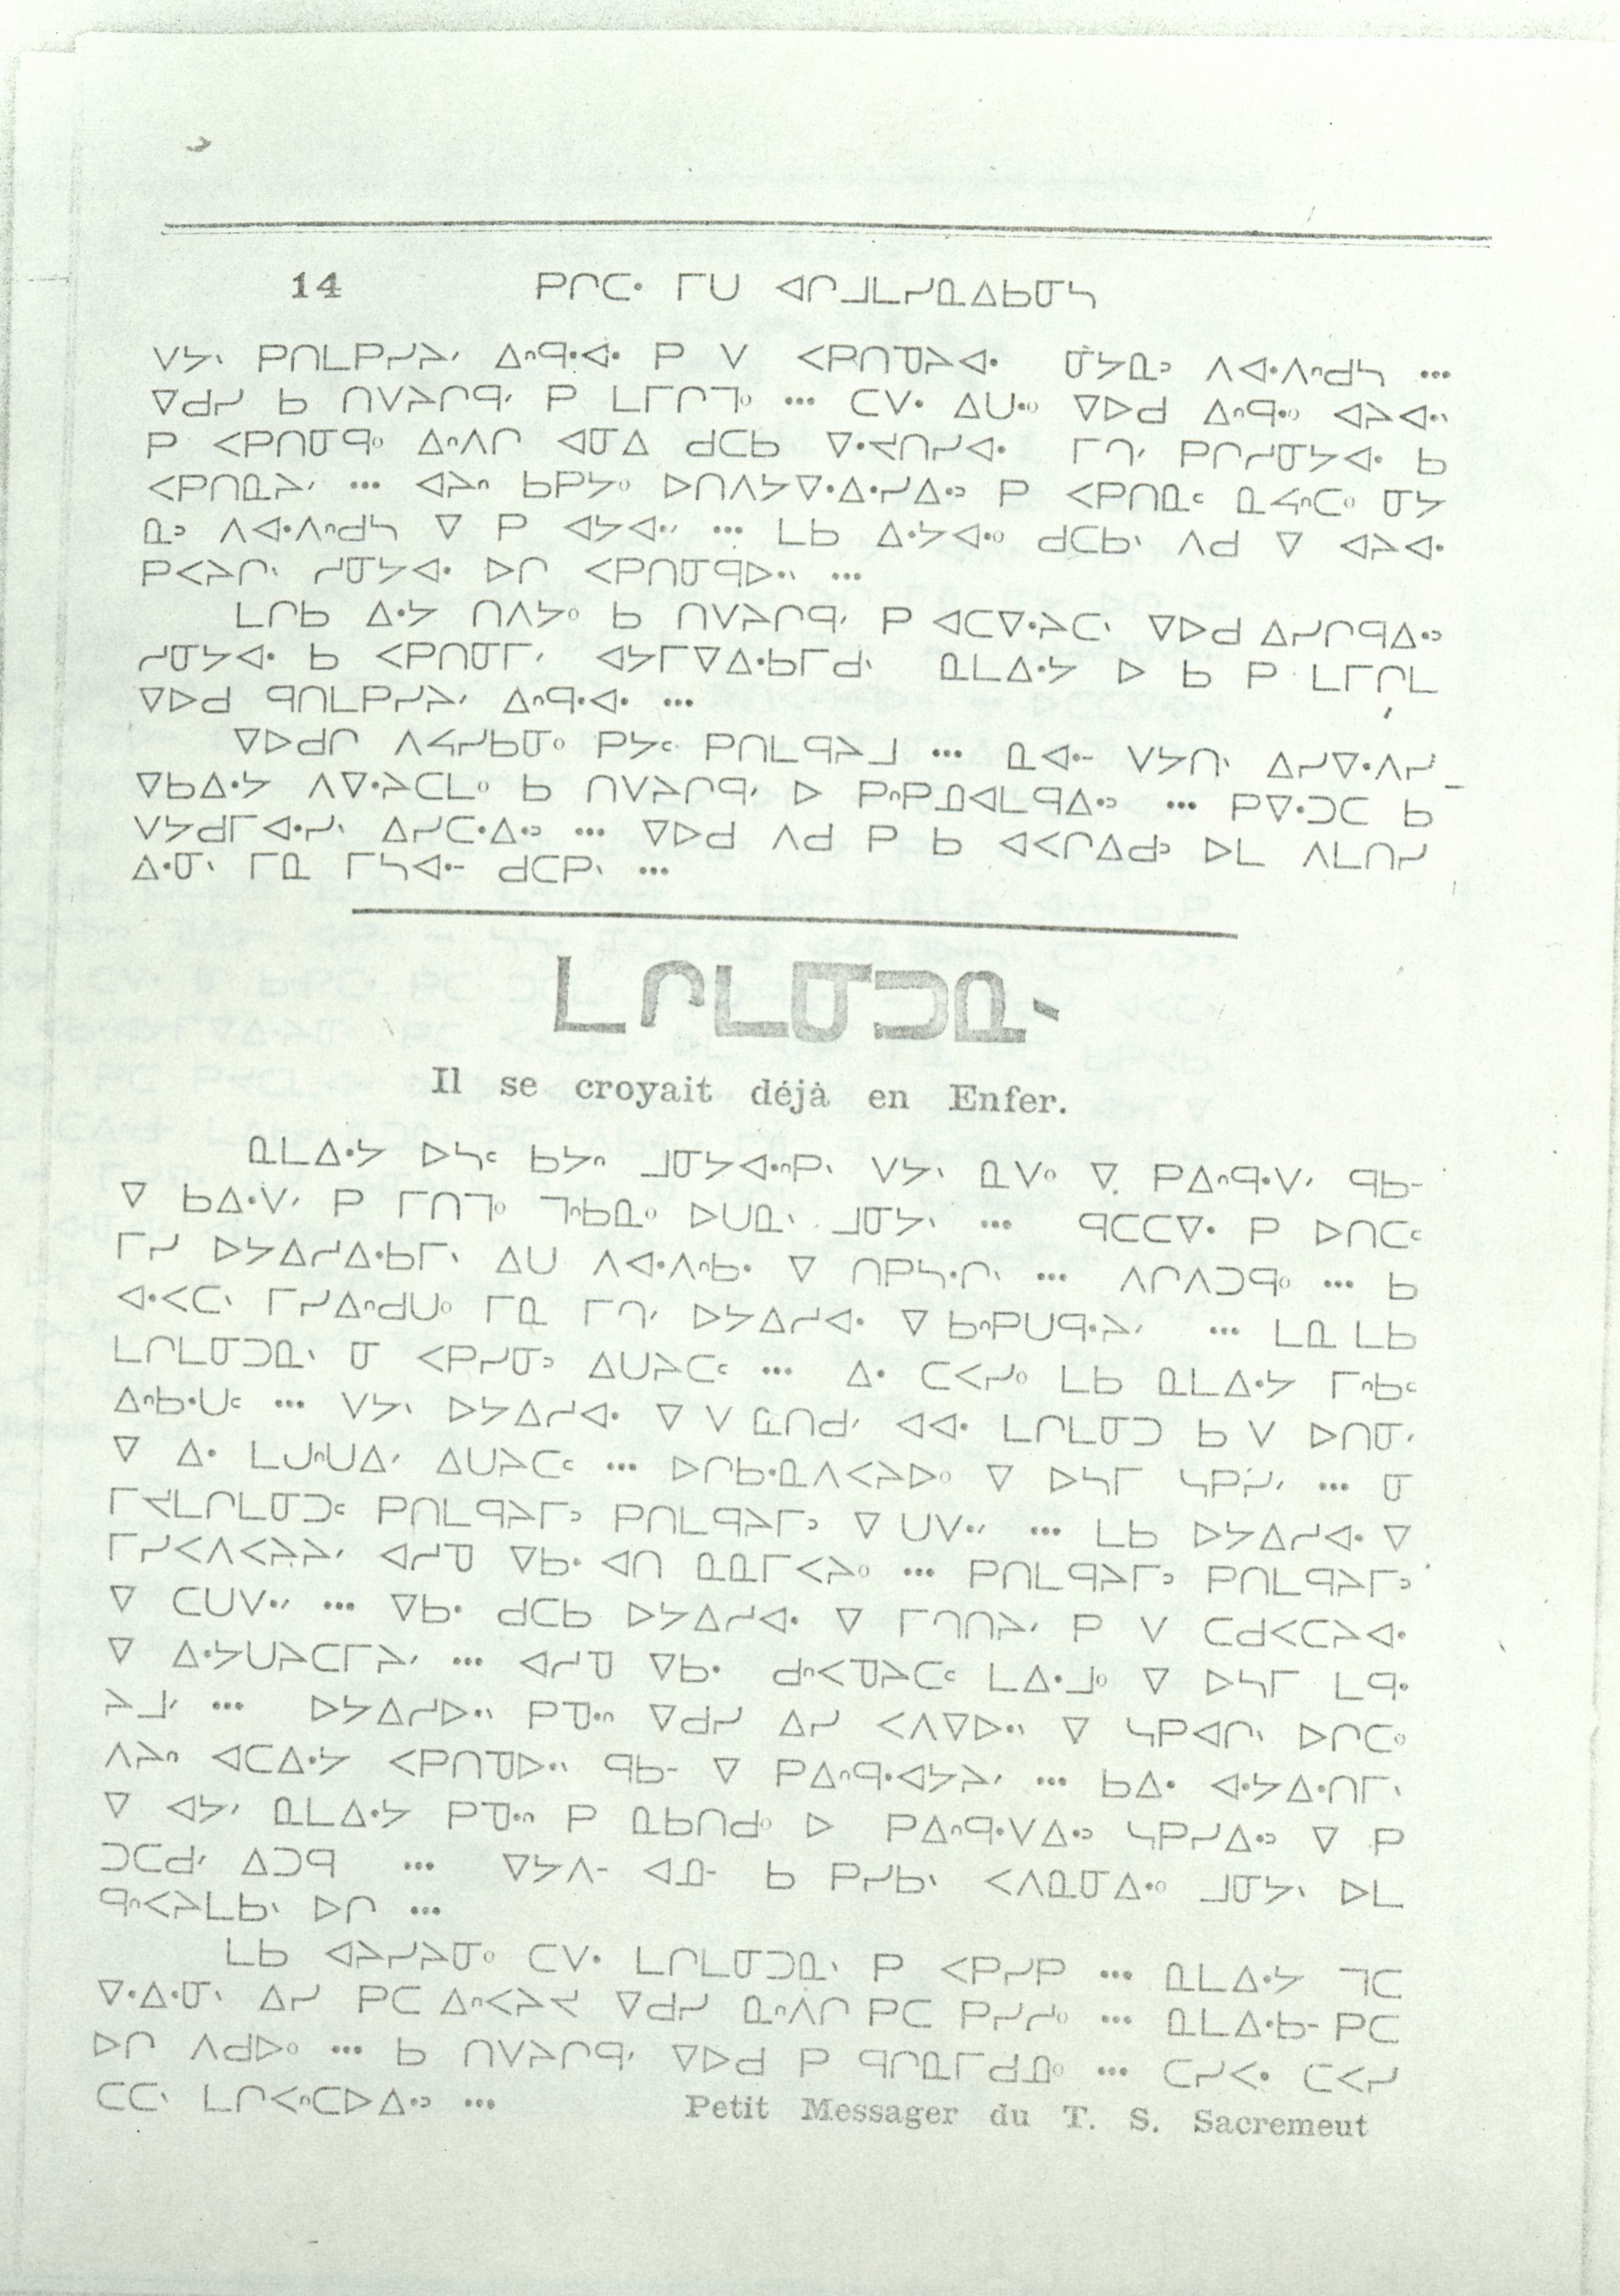 14 ᑭᒋᑕᐧ ᒥᑌ ᐊᒋᒧᒪᓯᓇᐃᑲᓂᓴ
ᐯᔭᐠ ᑭᑎᒪᑭᓯᔨᐟ ᐃᐢᑫᐧᐊᐧ ᑭ ᐯ ᐸᑭᑎᓀᔨᐊᐧ ᓂᔭᓇᐣ ᐱᐊᐧᐱᐢᑯᓴ ...
ᐁᑯᓯ ᑲ ᑎᐯᔨᒋᑫᐟ ᑭ ᒪᒥᒋᒣᐤ ... ᑕᐯᐧ ᐃᑌᐧᐤ ᐁᐅᑯ ᐃᐢᑫᐧᐤ ᐊᔨᐊᐧᐠ
ᑭ ᐸᑭᑎᓂᑫᐤ ᐃᐢᐱᒋ ᐊᓂᐃ ᑯᑕᑲ ᐁᐧᔪᑎᓯᐊᐧ ᒥᐢᑕᐟ ᑭᒋᓯᓂᔭᐊᐧ ᑲ
ᐸᑭᑎᓇᔨᐟ ... ᐊᔨᐢ ᑲᑭᔭᐤ ᐅᑎᐱᔭᐁᐧᐃᐧᓯᐃᐧᐣ ᑭ ᐸᑭᑎᓇᒼ ᓇᔕᐢᑕᐤ ᓂᔭ
ᓇᐣ ᐱᐊᐧᐱᐢᑯᓴ ᐁ ᑭ ᐊᔭᐊᐧᐟ ... ᒪᑲ ᐃᐧᔭᐊᐧᐤ ᑯᑕᑲᐠ ᐱᑯ ᐁ ᐊᔨᐊᐧ
ᑭᐸᔨᒋᐠ ᓯᓂᔭᐊᐧ ᐅᒋ ᐸᑭᑎᓂᑫᐅᐧᐠ ...
ᒪᒋᑲ ᐃᐧᔭ ᑎᐱᔭᐤ ᑲ ᑎᐯᔨᒋᑫᐟ ᑭ ᐊᑕᐁᐧᔨᑕᐠ ᐁᐅᑯ ᐃᓯᒋᑫᐃᐧᐣ
ᓯᓂᔭᐊᐧ ᑲ ᐸᑭᑎᓂᒥᐟ ᐊᔭᒥᐁᐃᐧᑲᒥᑯᐠ ᓇᒪᐃᐧᔭ ᐅ ᑲ ᑭ ᒪᒥᒋᒪ
ᐁᐅᑯ ᑫᑎᒪᑭᓯᔨᐟ ᐃᐢᑫᐧᐊᐧ ...
ᐁᐅᑯᒋ ᐱᓴᓯᑲᓂᐤ ᑭᔭᒼ ᑭᑎᒪᑫᔨᒧ ... ᓇᐊᐧᐨ ᐯᔭᑎᐠ ᐃᓯᐁᐧᐱᓯ
ᐁᑲᐃᐧᔭ ᐱᐁᐧᔨᑕᒪᐤ ᑲ ᑎᐯᔨᒋᑫᐟ ᐅ ᑭᐢᑭᓄᐊᒪᑫᐃᐧᐣ ... ᑭᐁᐧᑐᑕ ᑲ
ᐯᔭᑯᒥᐊᐧᓯᐠ ᐃᓯᑕᐧᐃᐧᐣ ... ᐁᐅᑯ ᐱᑯ ᑭ ᑲ ᐊᐸᒋᐃᑯᐣ ᐅᒪ ᐱᒪᑎᓯ
ᐃᐧᓂᐠ ᒥᓇ ᒥᓴᐊᐧᐨ ᑯᑕᑭᐠ ...
ᒪᒋᒪᓂᑐᓇᐠ
Il se croyait déjà en Enfer.
ᓇᒪᐃᐧᔭ ᐅᓴᒼ ᑲᔭᐢ ᒧᓂᔭᐊᐧᐢᑭᐠ ᐯᔭᐠ ᓇᐯᐤ ᐁ ᑭᐃᐢᑫᐧᐯᐟ ᑫᑲᐨ
ᐁ ᑲᐃᐧᐯᐟ ᑭ ᒥᑎᒣᐤ ᒣᐢᑲᓇᐤ ᐅᑌᓇᐠ ᒧᓂᔭᐠ ... ᑫᑕᑕᐁᐧ ᑭ ᐅᑎᑕᒼ
ᒥᓯ ᐅᔭᐃᓯᐃᐧᑲᒥᐠ ᐃᑌ ᐱᐊᐧᐱᐢᑲᐧ ᐁ ᑎᑭᓴᐧᒋᐠ ... ᐱᒋᐱᑐᑫᐤ ... ᑲ
ᐊᐧᐸᑕᐠ ᒥᓯᐃᐢᑯᑌᐤ ᒥᓇ ᒥᐢᑕᐟ ᐅᔭᐃᓯᐊᐧ ᐁ ᑲᐢᑭᑌᑫᐧᔨᐟ ... ᒪᓇ ᒪᑲ
ᒪᒋᒪᓂᑐᓇᐠ ᓂ ᐸᑭᓯᓂᐣ ᐃᑌᔨᑕᒼ ... ᐃᐧ ᑕᐸᓯᐤ ᒪᑲ ᓇᒪᐃᐧᔭ ᒥᐢᑲᒼ
ᐃᐢᑲᐧᑌᒼ ... ᐯᔭᐠ ᐅᔭᐃᓯᐊᐧ ᐁ ᐯ ᓇᑎᑯᐟ ᐊᐊᐧ ᒪᒋᒪᓂᑐ ᑲ ᐯ ᐅᑎᓂᐟ
ᐁ ᐃᐧ ᒪᒍᐢᑌᐃᐟ ᐃᑌᔨᑕᒼ ... ᐅᒋᑲᐧᓇᐱᐸᔨᐅᐤ ᐁ ᐅᓴᒥ ᓴᑭᓯᐟ ... ᓂ
ᒥᔪᒪᒋᒪᓂᑐᒼ ᑭᑎᒪᑫᔨᒥᐣ ᑭᑎᒪᑫᔨᒥᐣ ᐁ ᑌᐯᐧᐟ ... ᒪᑲ ᐅᔭᐃᓯᐊᐧ ᐁ
ᒥᓯᐸᐱᐸᔨᔨᐟ ᐊᓯᓀ ᐁᑲᐧ ᐊᑎ ᓇᓇᒥᐸᔨᐤ ... ᑭᑎᒪᑫᔨᒥᐣ ᑭᑎᒪᑫᔨᒥᐣ
ᐁ ᑕᑌᐯᐧᐟ ... ᐁᑲᐧ ᑯᑕᑲ ᐅᔭᐃᓯᐊᐧ ᐁ ᒥᒉᑎᔨᐟ ᑭ ᐯ ᑕᑯᐸᑕᔨᐊᐧ
ᐁ ᐃᐧᔭᑌᔨᑕᒥᔨᐟ ... ᐊᓯᓀ ᐁᑲᐧ ᑯᐢᐸᓀᔨᑕᒼ ᒪᐃᐧᒧᐤ ᐁ ᐅᓴᒥ ᒪᑫᐧ
ᔨᒧᐟ ... ᐅᔭᐃᓯᐅᐧᐠ ᑭᓀᐧᐢ ᐁᑯᓯ ᐃᓯ ᐸᐱᐁᐅᐧᐠ ᐁ ᓴᑭᐊᒋᐠ ᐅᒋᑕᐤ
ᐱᔨᐢ ᐊᑕᐃᐧᔭ ᐸᑭᑎᓀᐅᐧᐠ ᑫᑲᐨ ᐁ ᑭᐃᐢᑫᐧᐊᔭᔨᐟ ... ᑲᐃᐧ ᐊᐧᔭᐃᐧᑎᒥᐠ
ᐁ ᐊᔭᐟ ᓇᒪᐃᐧᔭ ᑭᓀᐧᐢ ᑭ ᓇᑲᑎᑯᐤ ᐅ ᑭᐃᐢᑫᐧᐯᐃᐧᐣ ᓴᑭᓯᐃᐧᐣ ᐁ ᑭ
ᑐᑕᑯᐟ ᐃᑐᑫ ... ᐁᔭᐱᐨ ᐊᓄᐨ ᑲ ᑭᓯᑲᐠ ᐸᐱᓇᓂᐃᐧᐤ ᒧᓂᔭᐠ ᐅᒪ
ᑫᐢᐸᔨᒪᑲᐠ ᐅᒋ ...
ᒪᑲ ᐊᔨᓯᔨᓂᐤ ᑕᐯᐧ ᒪᒋᒪᓂᑐᓇᐠ ᑭ ᐸᑭᓯᑭ ... ᓇᒪᐃᐧᔭ ᒣᑕ
ᐁᐧᐃᐧᓂᐠ ᐃᓯ ᑭᑕ ᐃᐢᐸᔨᔪ ᐁᑯᓯ ᓇᐢᐱᒋ ᑭᑕ ᑭᓯᓯᐤ ... ᓇᒪᐃᐧᑲᐨ ᑭᑕ
ᐅᒋ ᐱᑯᐅᐤ ... ᑲ ᑎᐯᔨᒋᑫᐟ ᐁᐅᑯ ᑭ ᑫᒋᓇᒥᑯᓄᐤ ... ᑕᓯᐸᐧ ᑕᐸᓯ
ᑕᑕᐠ ᒪᒋᐸᐢᑕᐅᐃᐧᐣ ...
Petit Messager du T. S. Sacremeut